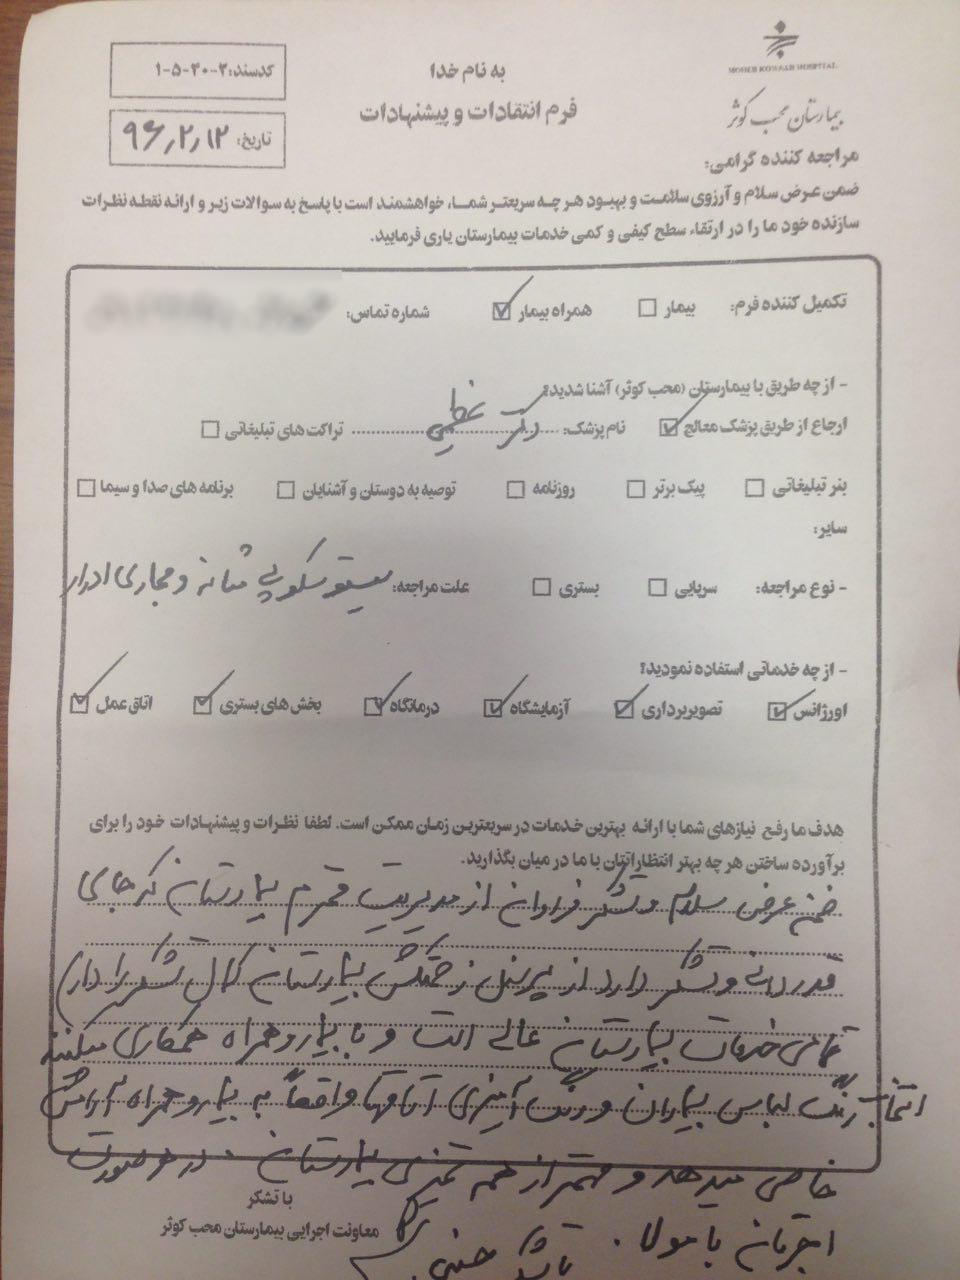 MOHEB KOWSAR HOSPITAL
بیمارستان محب کوثر
به نام خدا
فرم انتقادات و پیشنهادات
کدسند: ۲-۳۰-۵-۱
تاریخ: ۹۶٫۲٫۱۲
مراجعه کننده گرامی:
ضمن عرض سلام و آرزوی سلامت و بهبود هر چه سریعتر شما، خواهشمند است با پاسخ به سوالات زیر و ارائه نقطه نظرات
سازنده خود ما را در ارتقاء سطح کیفی و کمی خدمات بیمارستان یاری فرمایید.
تکمیل کننده فرم: بیمار همراه بیمار شماره تماس:
- از چه طریق با بیمارستان (محب کوثر) آشنا شدید؟
ارجاع از طریق پزشک معالج نام پزشک: دکتر تراکت های تبلیغاتی
بنر تبلیغاتی پیک برتر روزنامه توصیه به دوستان و آشنایان برنامه های صدا و سیما
سایر:
- نوع مراجعه: سرپایی بستری علت مراجعه: سیستوسکوپی مثانه و مجاری ادرار
- از چه خدماتی استفاده نمودید؟
اورژانس تصویربرداری آزمایشگاه درمانگاه بخش های بستری اتاق عمل
هدف ما رفع نیازهای شما با ارائه بهترین خدمات در سریعترین زمان ممکن است. لطفا نظرات و پیشنهادات خود را برای
برآورده ساختن هر چه بهتر انتظاراتتان با ما در میان بگذارید.
ضمن عرض سلام و تشکر فراوان از مدیریت محترم بیمارستان که جای
قدردانی و تشکر دارد از پرسنل زحمتکش بیمارستان کمال تشکر را دارم
تمامی خدمات بیمارستان عالی است و با بیمار و همراه همکاری میکنند
انتخاب رنگ لباس بیماران و رنگ آمیزی اتاقها واقعاً به بیمار و همراه آرامش
خاصی میدهد و مهمتر از همه تمیزی بیمارستان در هر صورت
اجرتان با مولا. با تشکر حسنی
با تشکر
معاونت اجرایی بیمارستان محب کوثر